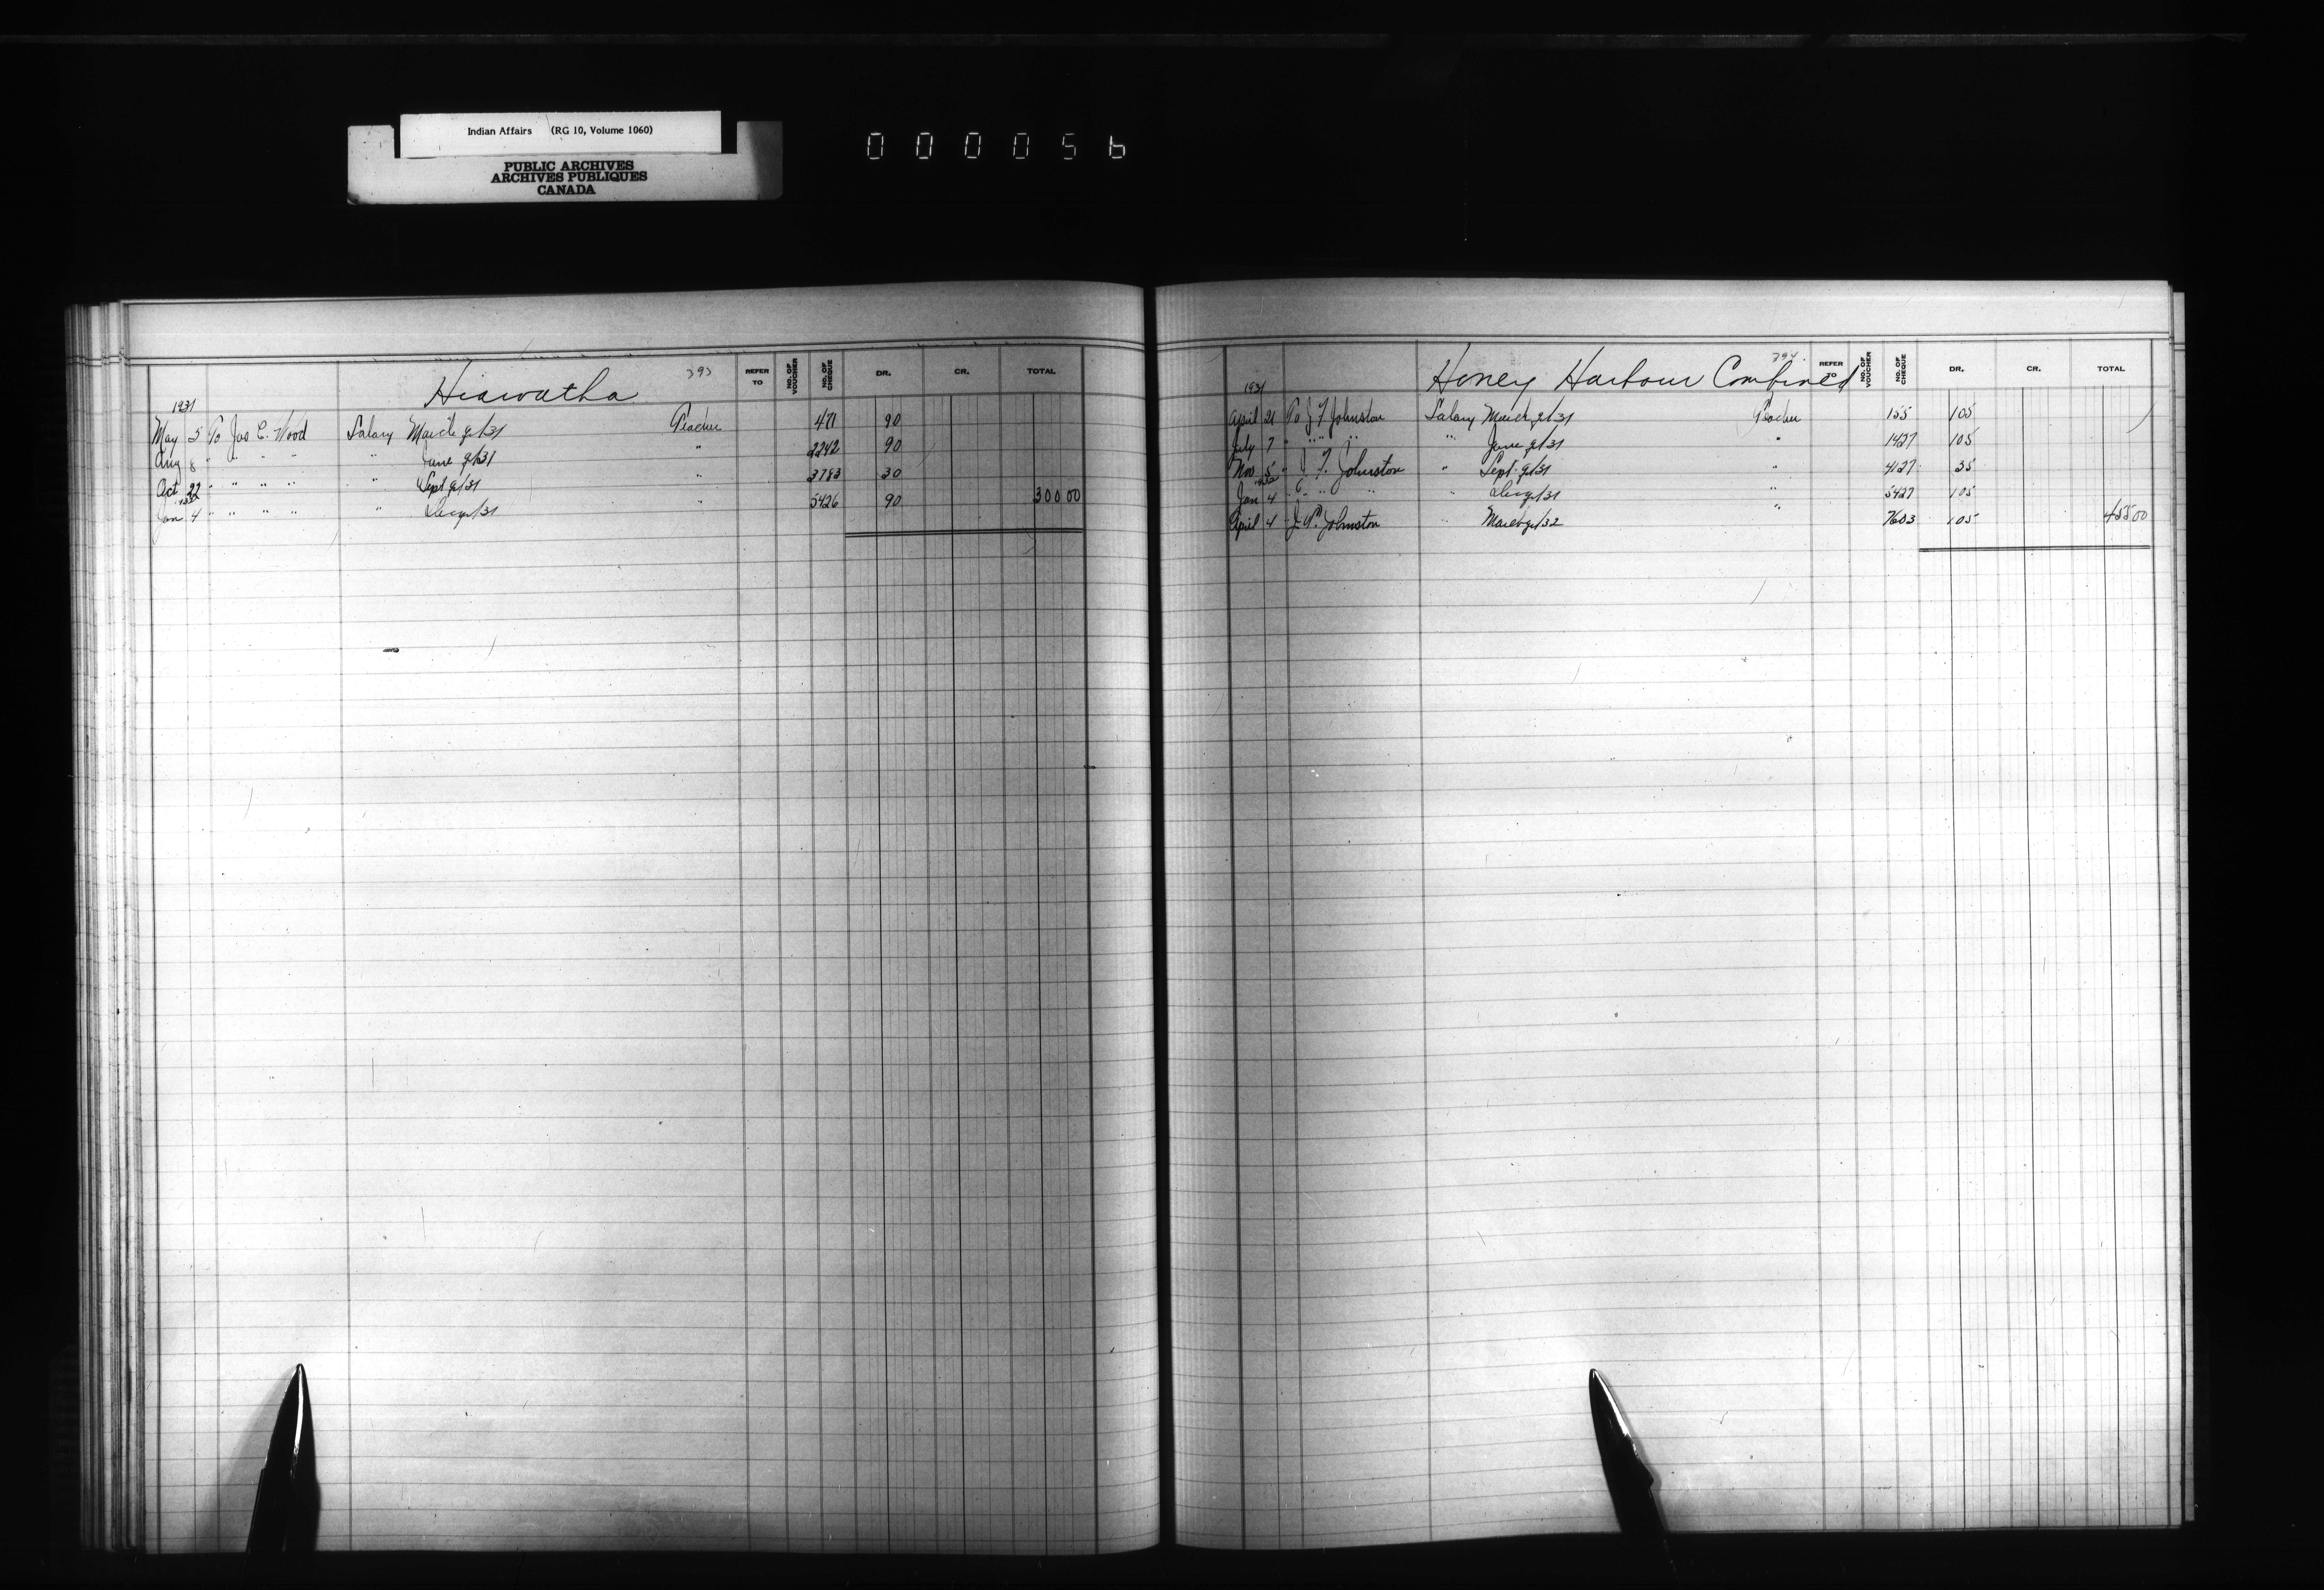 Indian Affairs (RG 10, Volume 1060)
PUBLIC ARCHIVES
ARCHIVES PUBLIQUES
CANADA
000056
Hiawatha 393 REFER TO NO. OF VOUCHER NO. OF CHEQUE DR. CR. TOTAL
1931
May 5 To Jas C. Wood Salary March qr/31 Teacher 471 90
Aug 8 " " " " " June qr/31 " 2242 90
Oct 22 " " " " " Sept qr/31 " 3783 30
1932
Jan 4 " " " " " Dec qr/31 " 5426 90 300 00
Honey Harbour Combined 394 REFER TO NO. OF VOUCHER NO. OF CHEQUE DR. CR. TOTAL
1931
April 21 To J F Johnston Salary March qr/31 Teacher 155 105
July 7 " " " " " June qr/31 " 1427 105
Nov 5 " J F. Johnston " Sept qr/31 " 4127 35
Jan 4 " " " " Dec qr/31 " 5427 105
April 4 Johnston " March qr/32 7603 105 455 00